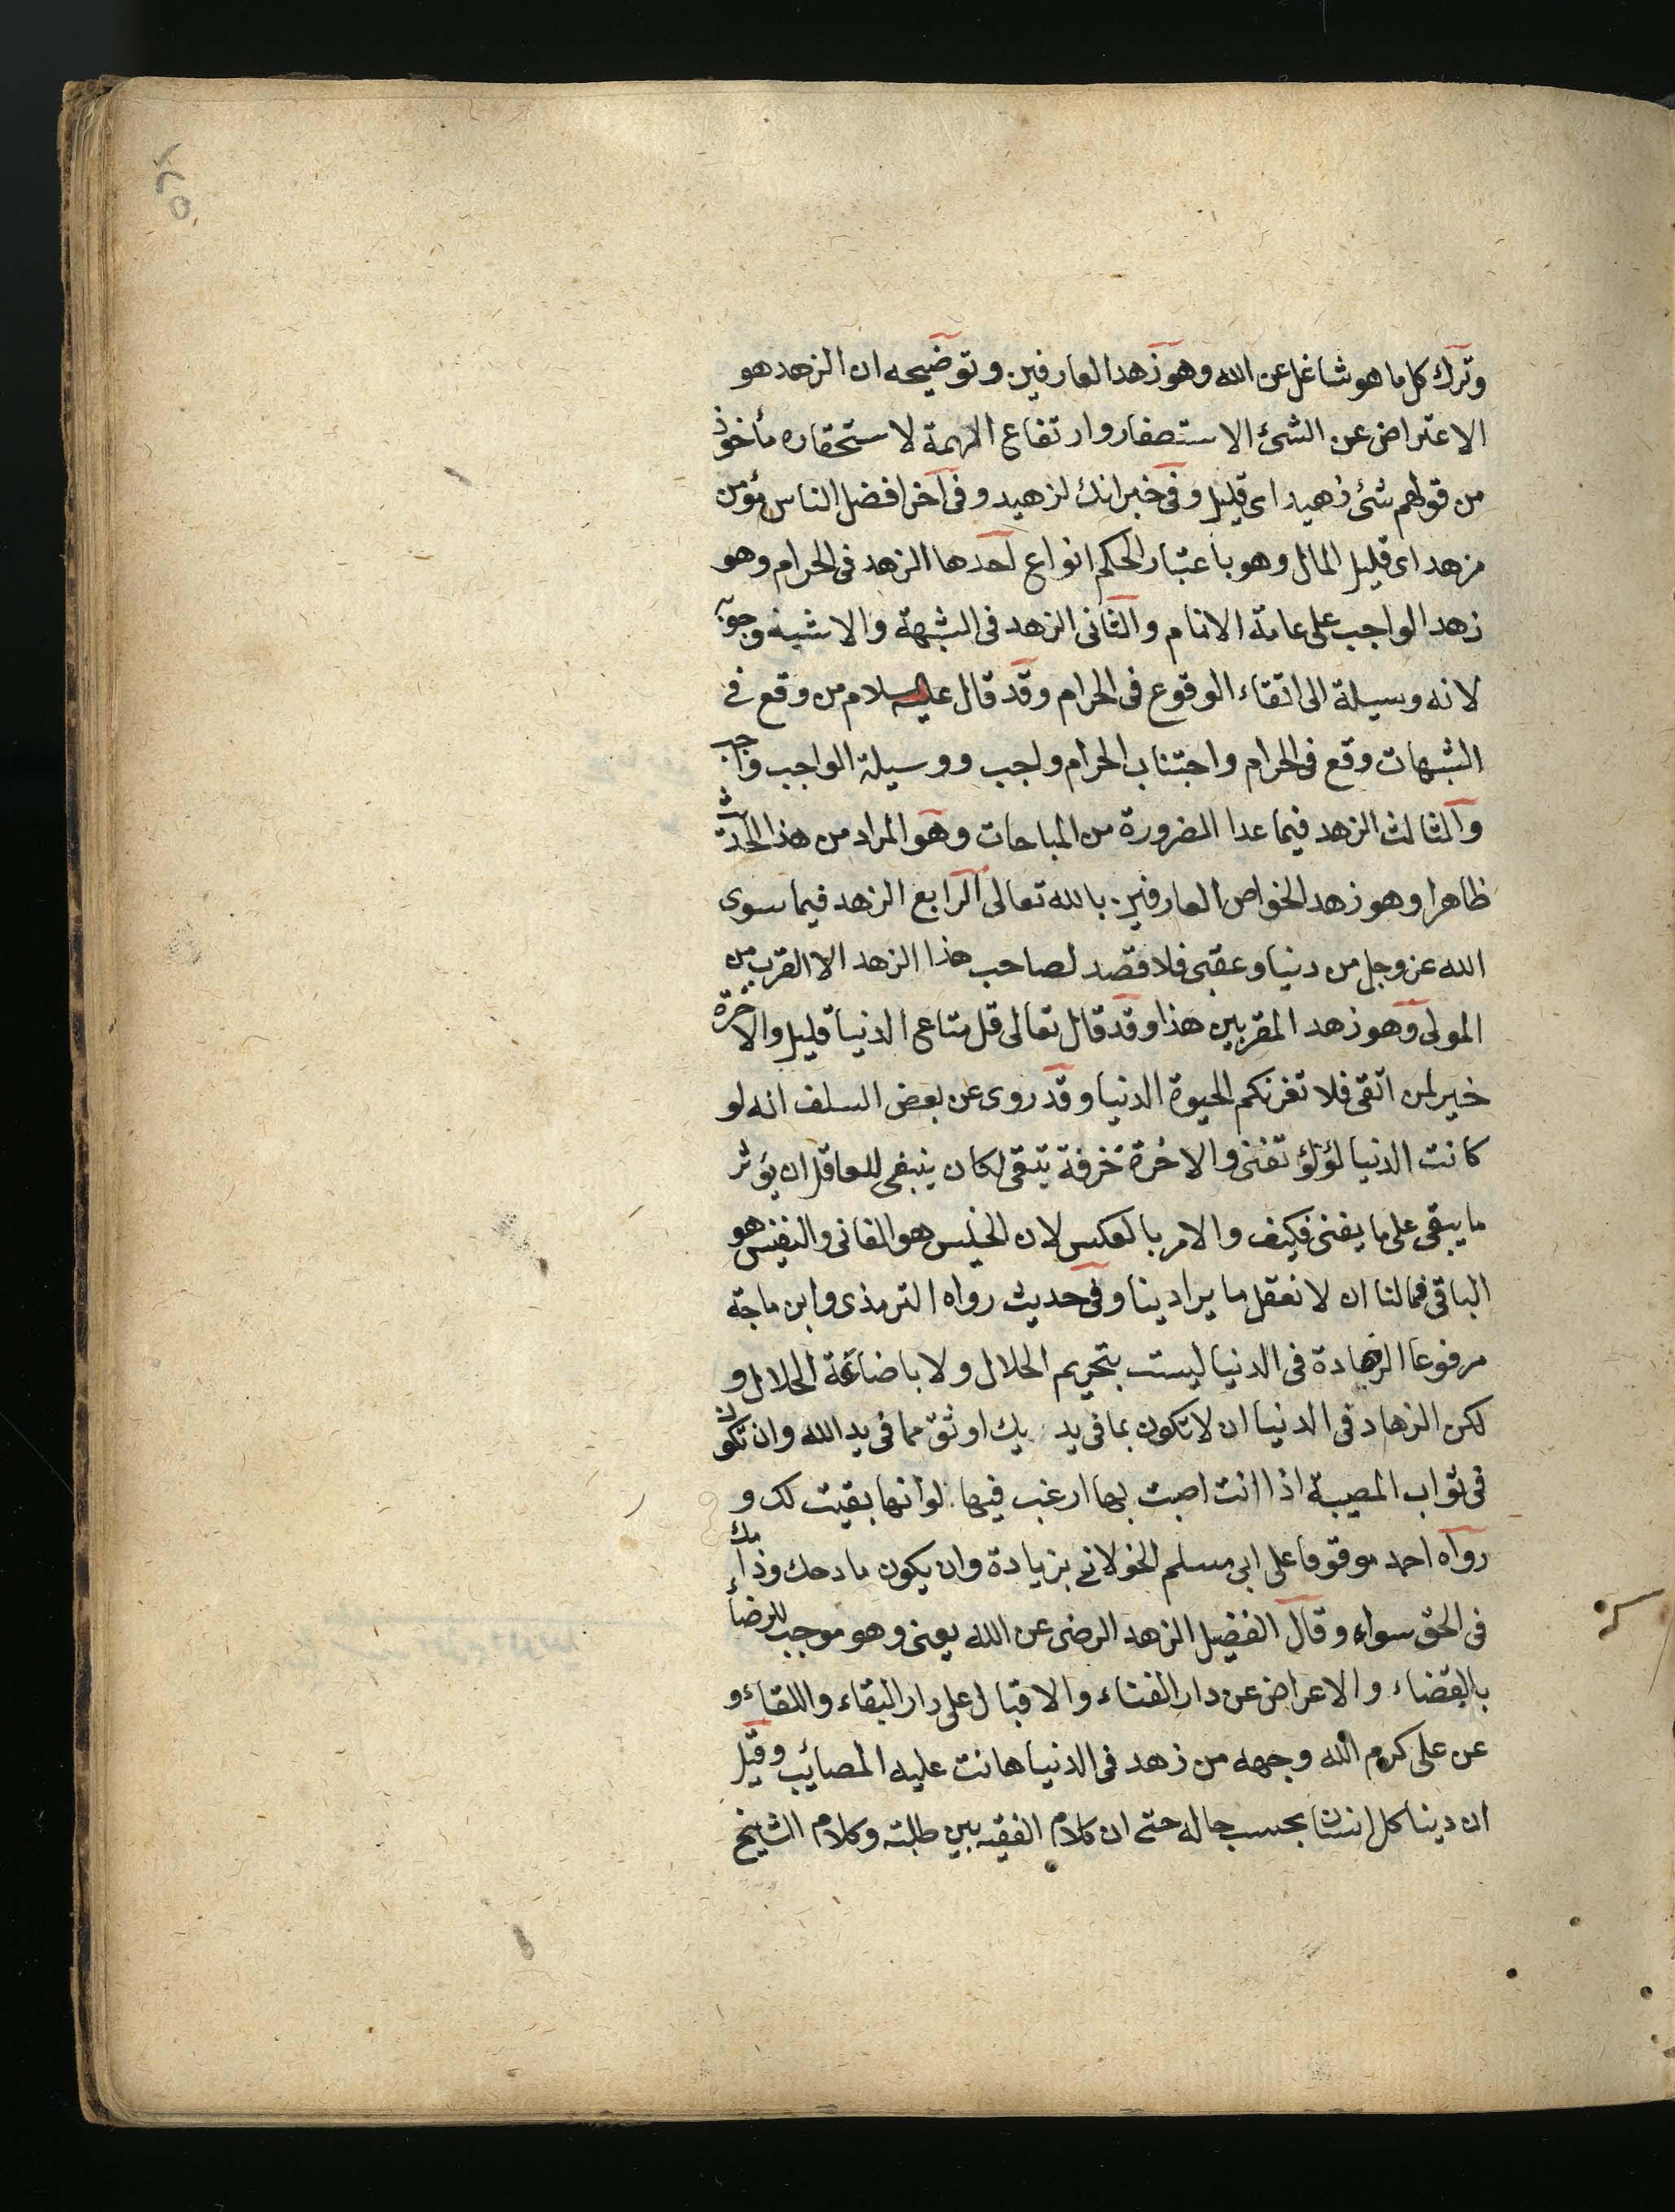 وترك كل ما هو شاغل عن الله وهو زهد العارفين وتوضيحه ان الزهد هو
الاعتراض عن الشئ الاستصغار وارتفاع الهمة لاستحقاره مأخوذ
من قولهم شئ زهيد اى قليل وفى خبر انك لزهيد وفى آخر افضل الناس مؤمن
مزهد اى قليل المال وهو باعتبار الحكم انواع احدها الزهد فى الحرام وهو
زهد الواجب على عامة الانام والثانى الزهد فى الشبهة والاشبه وجوبه
لانه وسيلة الى اتقاء الوقوع فى الحرام وقد قال عليه السلام من وقع فى
الشبهات وقع فى الحرام واجتناب الحرام واجب ووسيلة الواجب واجب
والثالث الزهد فيما عدا الضرورة من المباحات وهو المراد من هذا الحديث
ظاهرا وهو زهد الخواص العارفين بالله تعالى الرابع الزهد فيما سوى
الله عز وجل من دنيا وعقبى فلا قصد لصاحب هذا الزهد الا القرب من
المولى وهو زهد المقربين هذا وقد قال تعالى قل متاع الدنيا قليل والاخرة
خير لمن اتقى فلا تغرنكم الحيوة الدنيا وقد روى عن بعض السلف انه لو
كانت الدنيا لؤلؤ تفنى والاخرة خزفة تبقى لكان ينبغى للعاقل ان يؤثر
ما يبقى على ما يفنى فكيف والامر بالعكس لان الخسيس هو الفانى والنفيس هو
الباقى فمالنا ان لا نعقل ما يراد بنا وفى حديث رواه الترمذى وابن ماجة
مرفوعا الزهادة فى الدنيا ليست بتحريم الحلال ولا باضاعة الحلال و
لكن الزهاد فى الدنيا ان لا تكون بما فى يديك اوثق مما فى يد الله وان تكون
فى ثواب المصيبة اذا انت اصبت بها ارغب فيها لوانها بقيت لك و
رواه احمد موقوفا على ابى مسلم الخولانى بزيادة وان يكون مادحك وذامك
فى الحق سواء وقال الفضيل الزهد الرضى عن الله يعنى وهو موجب للرضاء
بالقضاء والاعراض عن دار الفناء والاقبال على دار البقاء واللقاء و
عن على كرم الله وجهه من زهد فى الدنيا هانت عليه المصائب وقيل
ان دينا كل انسان بحسب حاله حتى ان كلام الفقيه بين طلبته وكلام الشايخ